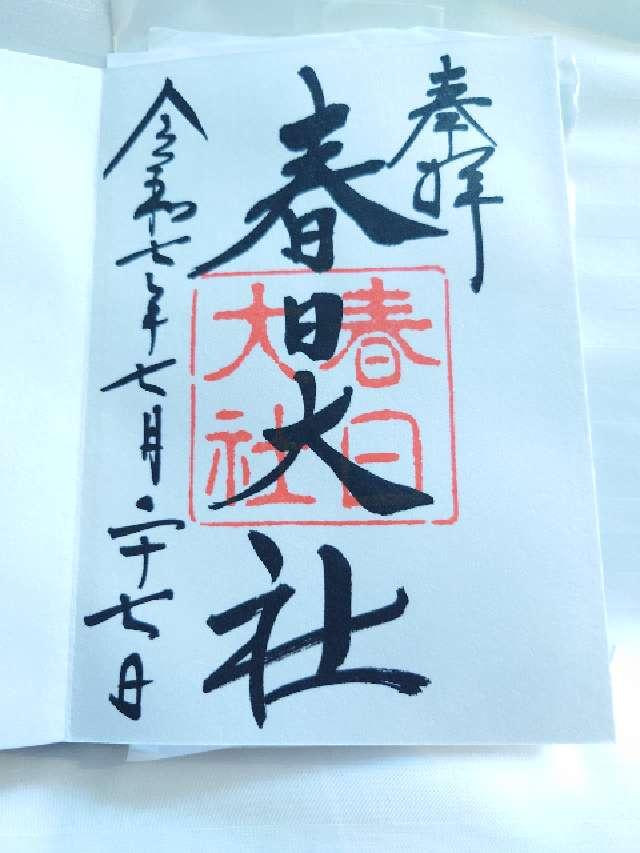 奉拝
春日大社
春日
大社
令和七年七月二十七日